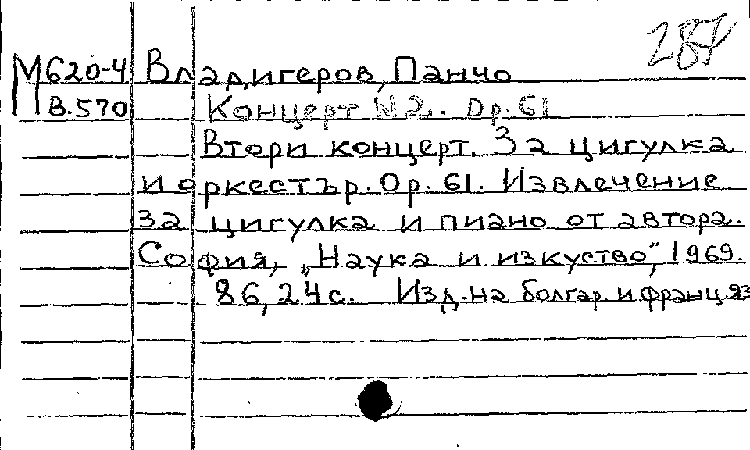 287
М620-4 Владигеров, Панчо
В.570 Концерт №2. Op. 61
Втори концерт. За цигулка
и оркестър. Op. 61. Извлечение
за цигулка и пиано от автора.
София, „Наука и изкуство", 1969.
86, 24 с. Изд. на болгар. и франц. яз